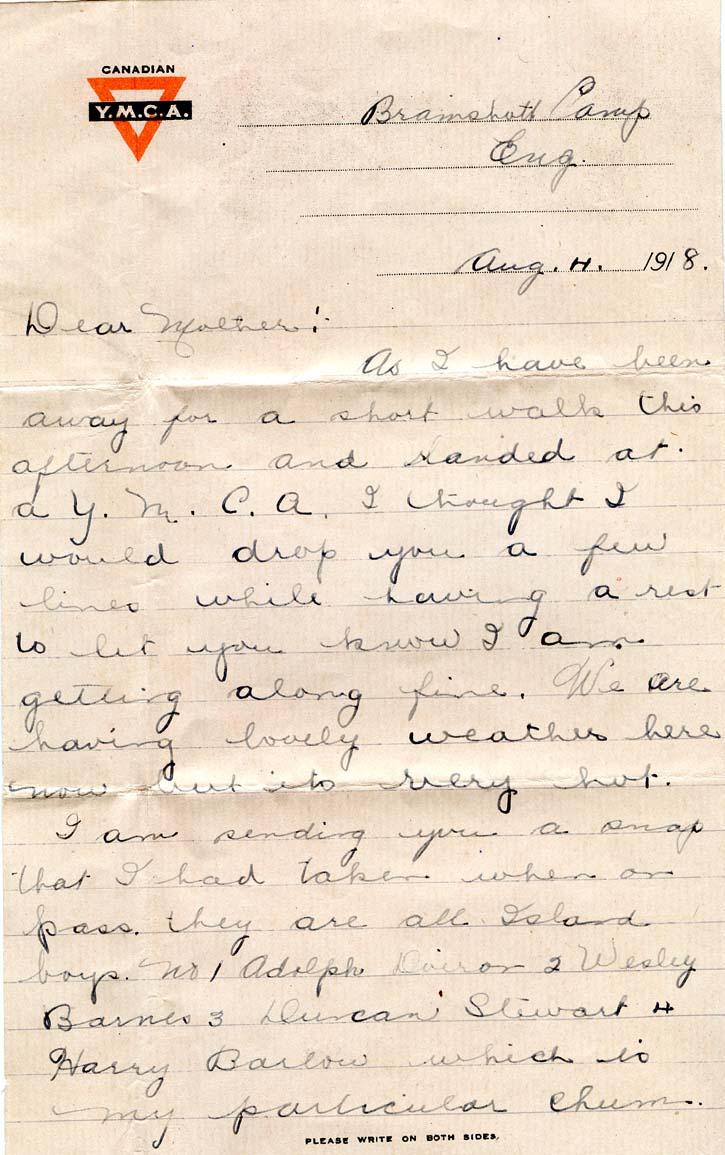 CANADIAN
Y.M.C.A.
Bramshott Camp
Eng.
Aug. 4. 1918.
Dear Mother:
As I have been
away for a short walk this
afternoon and landed at
a Y. M. C. A. I thought I
would drop you a few
lines while having a rest
to let you know I am
getting along fine. We are
having lovely weather here
now but its very hot.
I am sending you a snap
that I had taken when on
pass. they are all Island
boys. No 1 Adolph Doiron 2 Wesley
Barnes 3 Duncan Stewart 4
Harry Barlow which is
my particular chum.
PLEASE WRITE ON BOTH SIDES.